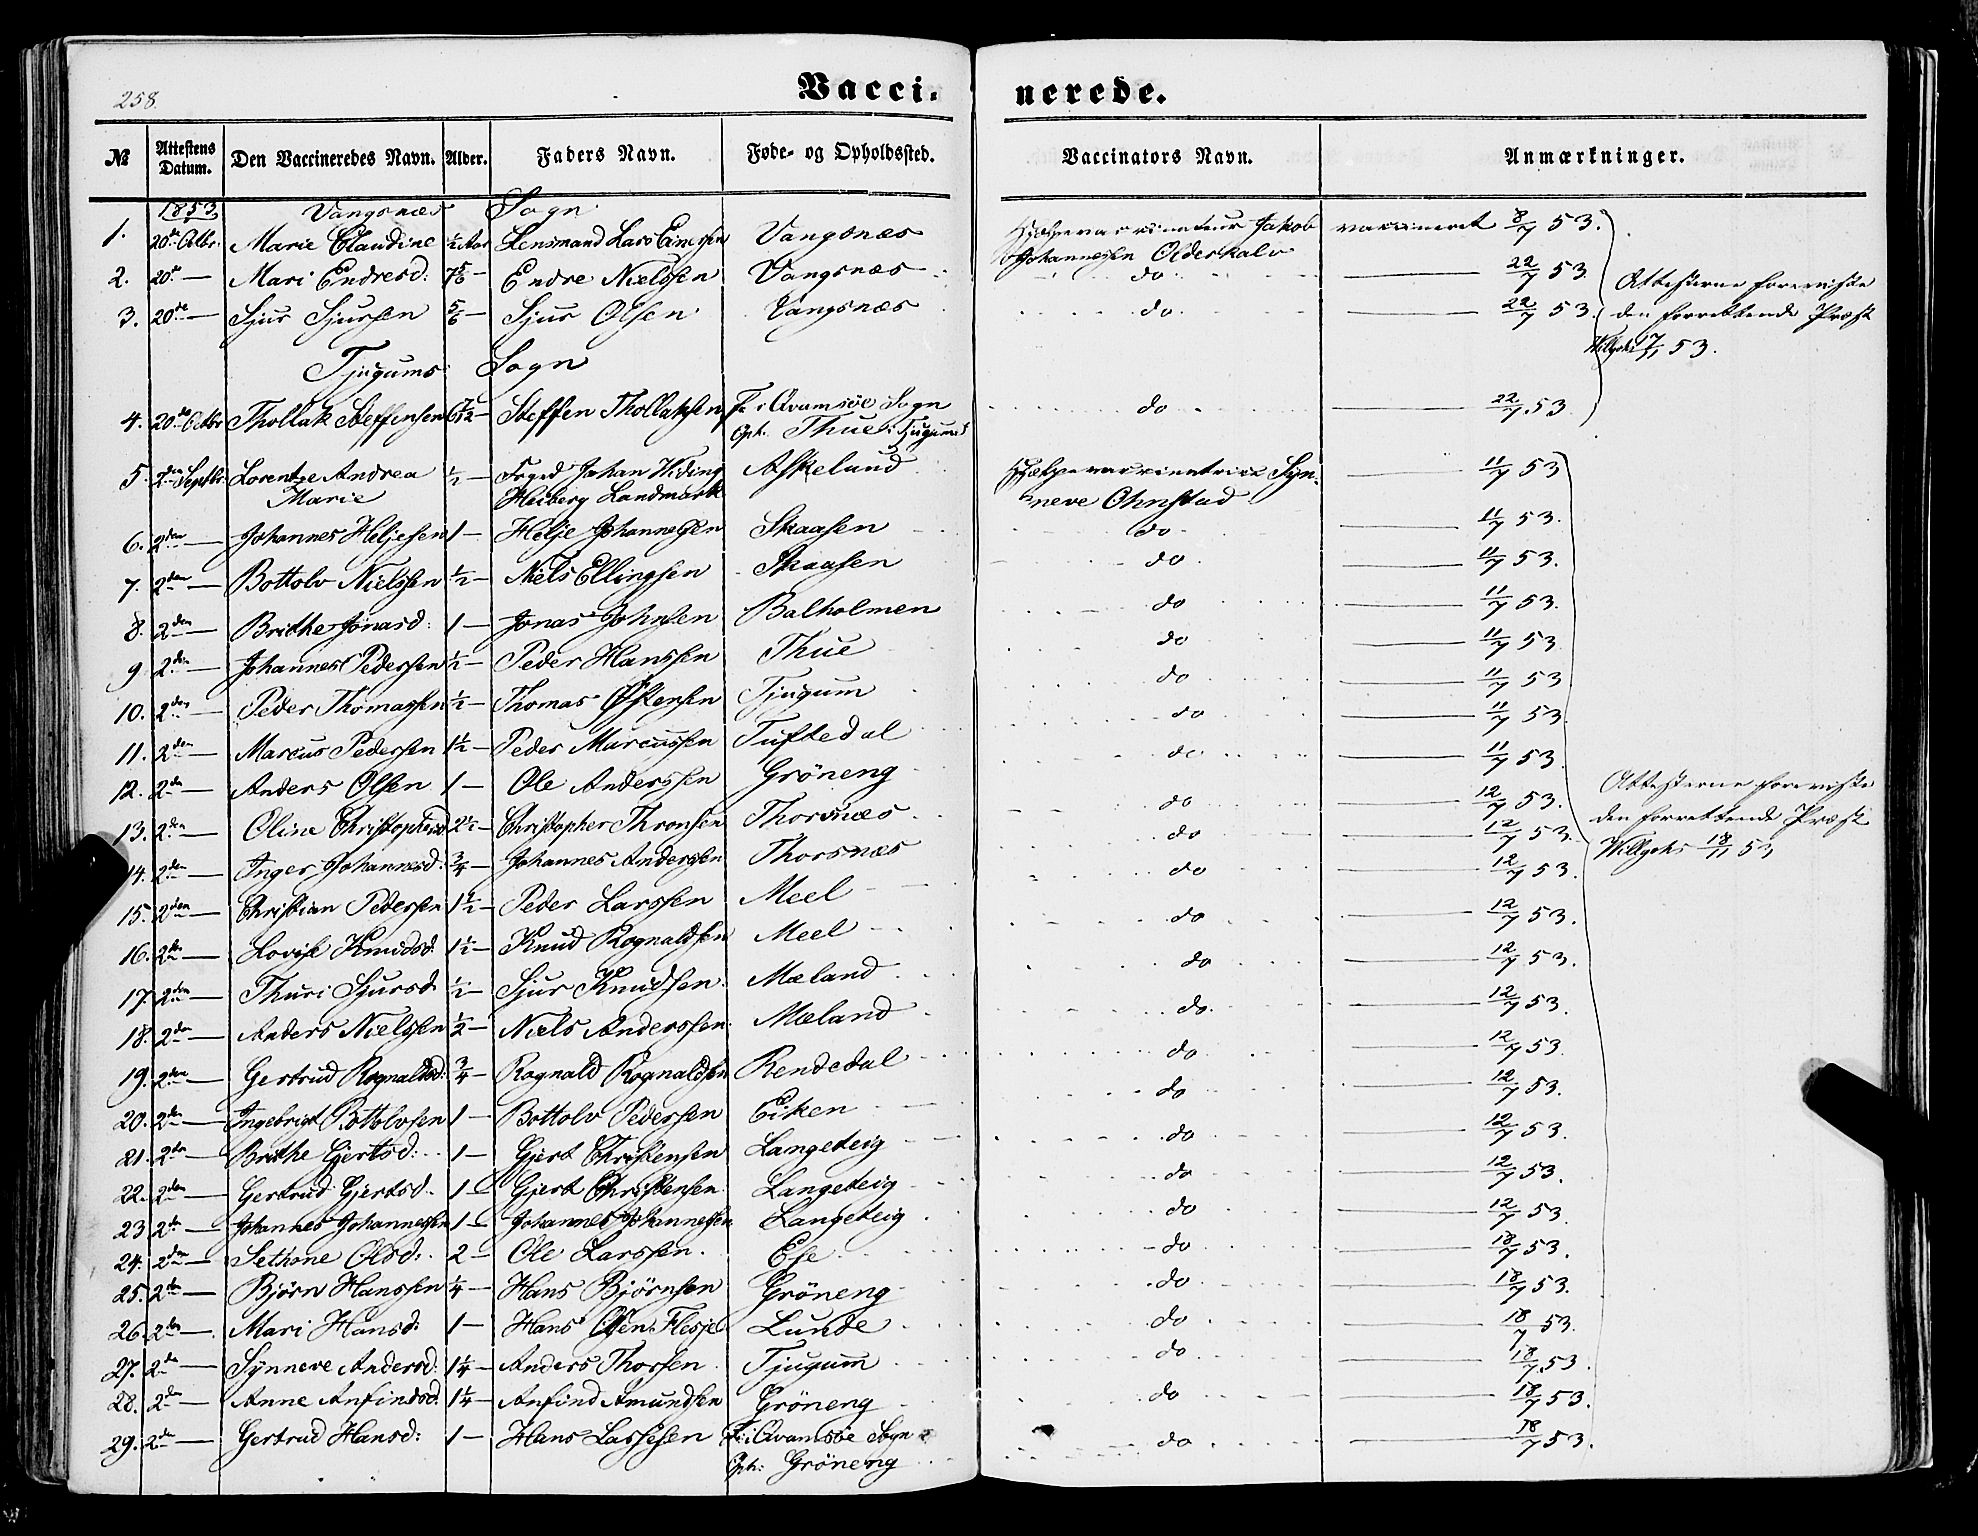 258.
Vacci- nerede.
№ Attestens Datum. Den Vaccineredes Navn. Alder. Faders Navn. Føde- og Opholdssted. Vaccinators Navn. Anmærkninger.
1853 Vangsnæs Sogn
1. 20de Octbr. Marie Claudine ½ Aar Lensmand Lars Vangsnæs Hjælpevaccinateur Jakob Johannessen vaccineret 8/7 53.
2. 20de — Mari Endresd: 7 5/6 — Endre Nielssen Vangsnæs do — 22/7 53
3. 20de — Sjur Sjursen 5/6 Sjur Olsen Vangsnæs do — 22/7 53.
Attesterne foreviste
den forrettende Præst
Willgohs 17/11 53.
Tjugums Sogn
4. 20de Octbr Thollak Steffensen 6 7/12 — Steffen Thollaksen F. i Qvamsöe Sogn do — 22/7 53
Oph. Thue i Tjugums
5. 2den Septbr. Lorentze Andrea Marie ½ — Foged Johan Widing Heiberg Landmark Askelund Hjælpevaccinatrice Synneve Ohnstad — 11/7 53
6. 2den — Johannes Heljesen 1 — Helje Johannesen Skaasen do — 11/7 53.
7. 2den — Bottolv Nielssen ½ — Niels Ellingsen Skaasen do — 11/7 53.
8. 2den — Brithe Jonasd: 1 — Jonas Johnsen Balholmen do — 11/7 53.
9. 2den — Johannes Pederssen ½ — Peder Hanssen Thue do — 11/7 53
10. 2den — Peder Thomassen ½ — Thomas Østensen Tjugum do — 11/7 53
11. 2den — Marcus Pedersen 1½ — Peder Marcussen Tuftedal do — 11/7 53
12. 2den — Anders Olsen 1 — Ole Anderssen Gröneng do — 11/7 53
13. 2den — Oline Christophersd 2½ — Christopher Thronsen Thorsnæs do — 12/7 53.
14. 2den — Inger Johannesd. ¾ — Johannes Anderssen Thorsnæs do — 12/7 53.
15. 2den — Christian Pederssen 1½ — Peder Larssen Meel do — 12/7 53.
16. 2den — Lovise Knudsd. 1½ — Knud Rognaldsen Meel do — 12/7 53.
17. 2den — Thuri Sjursd. ½ — Sjur Knudsen Mæland do — 12/7 53.
18. 2den — Anders Nielssen ½ — Niels Anderssen Mæland do — 12/7 53.
19. 2den — Gertrud Rognaldsd: ¾ — Rognald Rognaldsen Rendedal do — 12/7 53.
20. 2den — Ingebrigt Bottolvsen 1 — Bottolv Pederssen Eiken do — 12/7 53.
21. 2den — Brithe Gjertsd: 1 — Gjert Christensen Langeteig do — 12/7 53.
22. 2den — Gertrud Gjertsd. 1 — Gjert Christensen Langeteig do — 12/7 53.
23 2den — Johannes Johannessen 1 — Johannes Johannessen Langeteig do — 12/7 53.
24. 2den — Sethone Olsd: 2 — Ole Larssen. Ese do — 18/7 53.
25. 2den — Bjørn Hanssen ¼ — Hans Bjørnsen Gröneng do — 18/7 53.
26. 2den — Mari Hansd: 1 — Hans Olsen Flesje Lunde do — 18/7 53.
27. 2den — Synneve Andersd. 1¼ — Anders Thorsen Tjugum do — 18/7 53.
28. 2den — Anne Anfindsd. 1¼ — Anfind Amundsen Gröneng do — 18/7 53.
29. 2den — Gertrud Hansd: 1 — Hans Lassesen F: i Qvamsöe Sogn do — 18/7 53.
Oph: Gröneng
Attesterne foreviste
den forrettende Præst
Willgohs 18/11 53